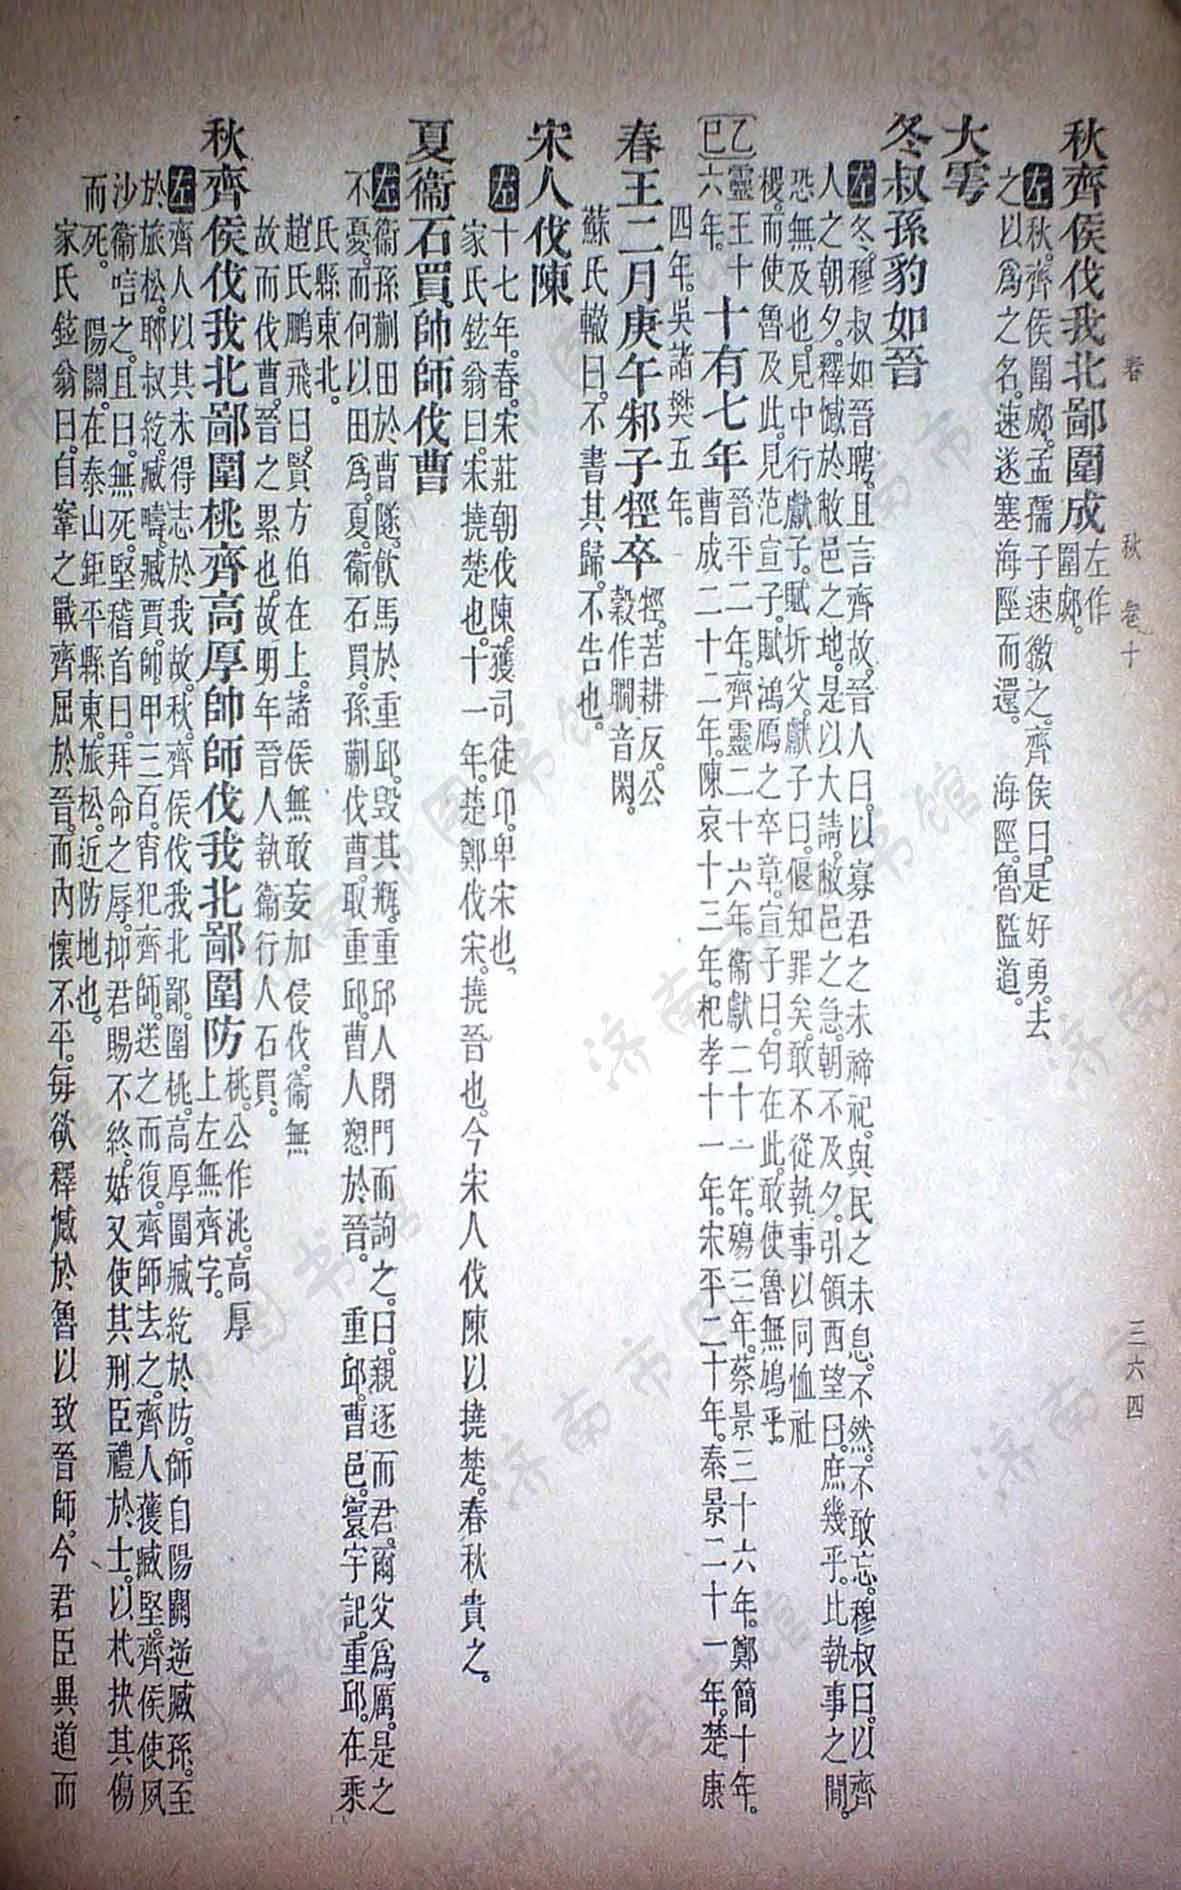 春秋 卷十 三六四
秋齊侯伐我北鄙圍成左作圍郕。
左秋。齊侯圍郕。孟孺子速徼之。齊侯曰。是好勇。去
之以爲之名。速遂塞海陘而還。 海陘。魯隘道。
大雩
冬叔孫豹如晉
左冬。穆叔如晉聘。且言齊故。晉人曰。以寡君之未禘祀。與民之未息。不然。不敢忘。穆叔曰。以齊
人之朝夕。釋憾於敝邑之地。是以大請。敝邑之急。朝不及夕。引領西望曰。庶幾乎。比執事之閒。
恐無及也。見中行獻子。賦圻父。獻子曰。偃知罪矣。敢不從執事以同恤社
稷。而使魯及此。見范宣子。賦鴻鴈之卒章。宣子曰。匄在此。敢使魯無鳩乎。
乙巳靈王十六年。十有七年晉平二年。齊靈二十六年。衞獻二十一年。殤三年。蔡景三十六年。鄭簡十年。
曹成二十二年。陳哀十三年。杞孝十一年。宋平二十年。秦景二十一年。楚康
四年。吳諸樊五年。
春王二月庚午邾子牼卒牼。苦耕反。公穀作瞯音閑。
蘇氏轍曰。不書其歸。不告也。
宋人伐陳
左十七年。春。宋莊朝伐陳。獲司徒卬。卑宋也。
家氏鉉翁曰。宋撓楚也。十一年。楚鄭伐宋。撓晉也。今宋人伐陳以撓楚。春秋貴之。
夏衞石買帥師伐曹
左衞孫蒯田於曹隧。飮馬於重邱。毀其瓶。重邱人閉門而訽之。曰。親逐而君。爾父爲厲。是之
不憂。而何以田爲。夏。衞石買。孫蒯伐曹。取重邱。曹人愬於晉。 重邱。曹邑。寰宇記。重邱。在乘
氏縣東北。
趙氏鵬飛曰。賢方伯在上。諸侯無敢妄加侵伐。衞無
故而伐曹。晉之累也。故明年晉人執衞行人石買。
秋齊侯伐我北鄙圍桃齊高厚帥師伐我北鄙圍防桃。公作洮。高厚上左無齊字。
左齊人以其未得志於我故。秋。齊侯伐我北鄙。圍桃。高厚圍臧紇於防。師自陽關逆臧孫。至
於旅松。郰叔紇。臧疇。臧賈。帥甲三百。宵犯齊師。送之而復。齊師去之。齊人獲臧堅。齊侯使夙
沙衞唁之。且曰。無死。堅稽首曰。拜命之辱。抑君賜不終。姑又使其刑臣禮於士。以杙抉其傷
而死。 陽關。在泰山鉅平縣東。旅松。近防地也。
家氏鉉翁曰。自鞌之戰齊屈於晉。而內懷不平。每欲釋憾於魯以致晉師。今君臣異道而